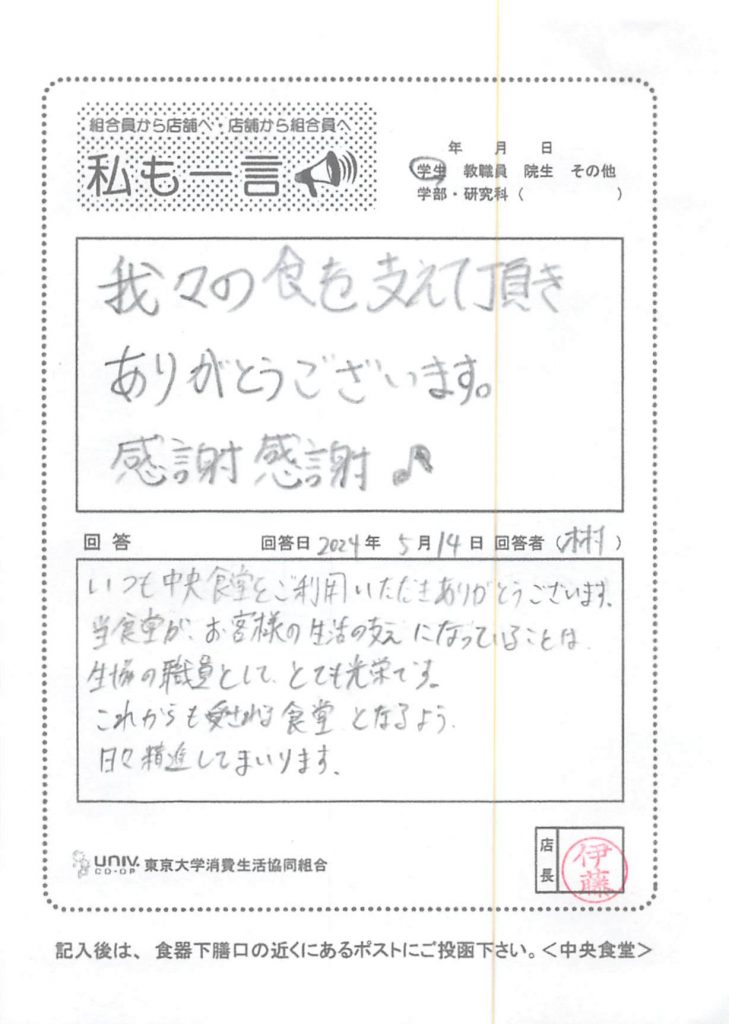 組合員から店舗へ・店舗から組合員へ
私も一言
年 月 日
学生 教職員 院生 その他
学部・研究科（ ）
我々の食を支えて頂き
ありがとうございます。
感謝感謝♪
回答 回答日 2024年 5月14日 回答者（ ）
いつも中央食堂をご利用いただきありがとうございます。
当食堂が、お客様の生活の支えになっていることは、
生協の職員として、とても光栄です。
これからも愛される食堂となるよう、
日々精進してまいります。
UNIV. CO-OP 東京大学消費生活協同組合
店長 伊藤
記入後は、食器下膳口の近くにあるポストにご投函下さい。＜中央食堂＞